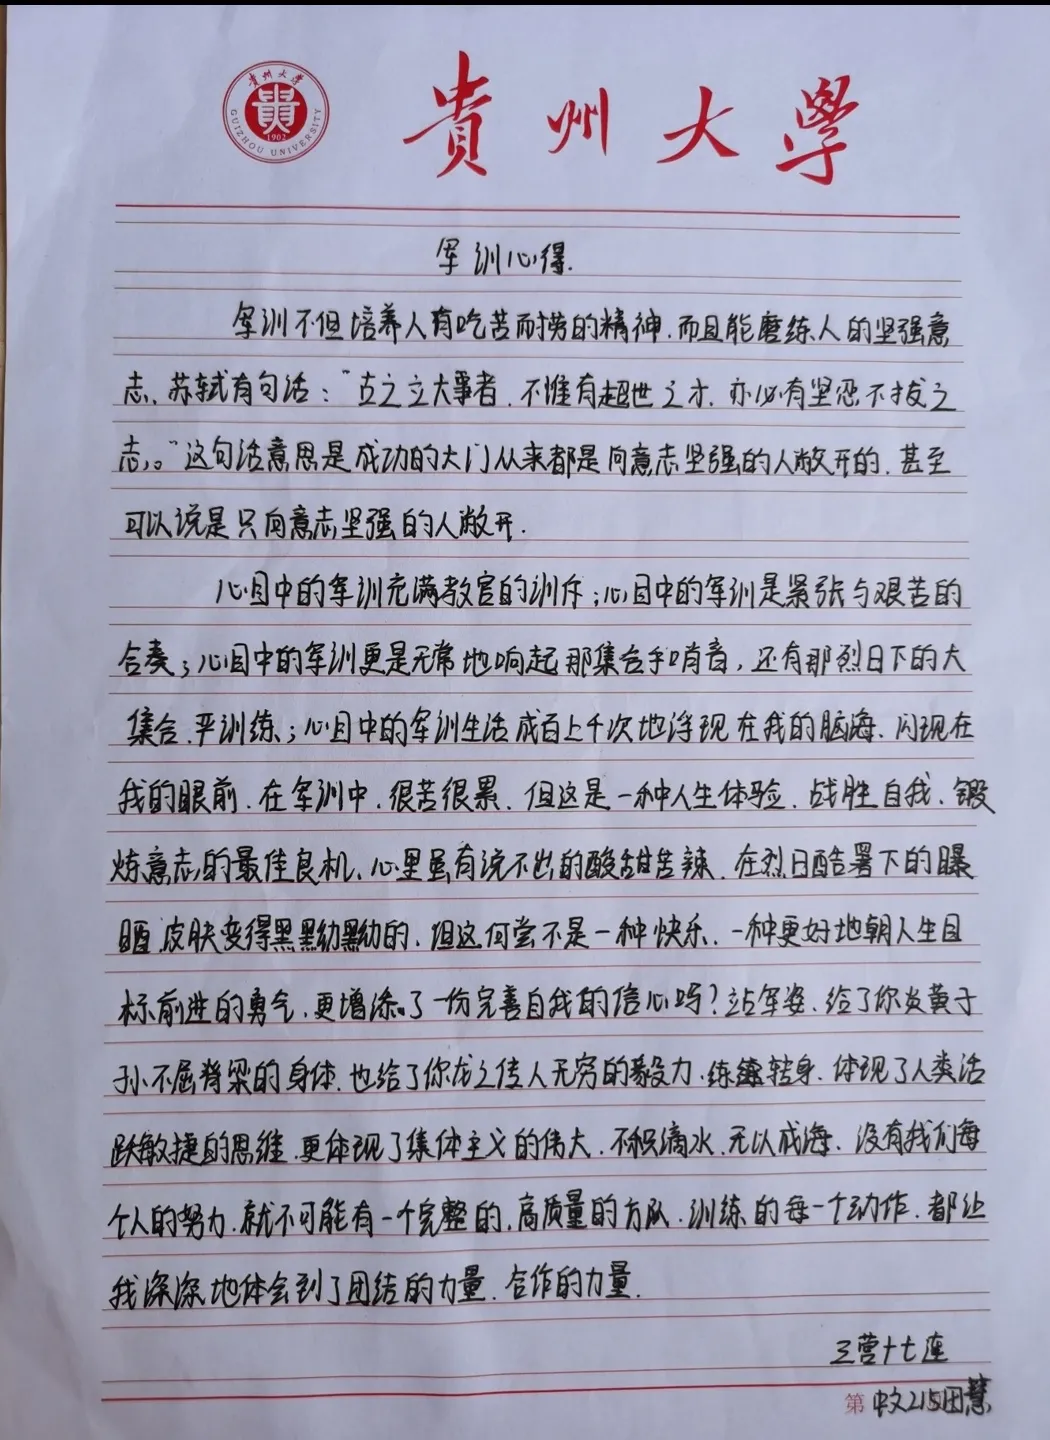 貴州大學
貴州大學
貴
1902
GUIZHOU UNIVERSITY
军训心得.
军训不但培养人有吃苦而耐劳的精神.而且能磨练人的坚强意
志.苏轼有句话："古之立大事者.不惟有超世之才.亦必有坚忍不拔之
志。"这句话意思是成功的大门从来都是向意志坚强的人敞开的.甚至
可以说是只向意志坚强的人敞开.
心目中的军训充满教官的训斥;心目中的军训是紧张与艰苦的
合奏;心目中的军训更是无常地响起那集合手哨音,还有那烈日下的大
集合.严训练;心目中的军训生活成百上千次地浮现在我的脑海.闪现在
我的眼前.在军训中.很苦很累.但这是一种人生体验.战胜自我.锻
炼意志的最佳良机.心里虽有说不出的酸甜苦辣.在烈日酷署下的曝
晒.皮肤变得黑黝黝的.但这何尝不是一种快乐.一种更好地朝人生目
标前进的勇气.更增添了一份完善自我的信心吗?站军姿.给了你炎黄子
孙不屈脊梁的身体.也给了你龙之传人无穷的毅力.练转身.体现了人类活
跃敏捷的思维.更体现了集体主义的伟大.不积滴水.无以成海.没有我们每
个人的努力.就不可能有一个完整的.高质量的方队.训练的每一个动作.都让
我深深地体会到了团结的力量.合作的力量.
三营十七连
第 中文215田慧